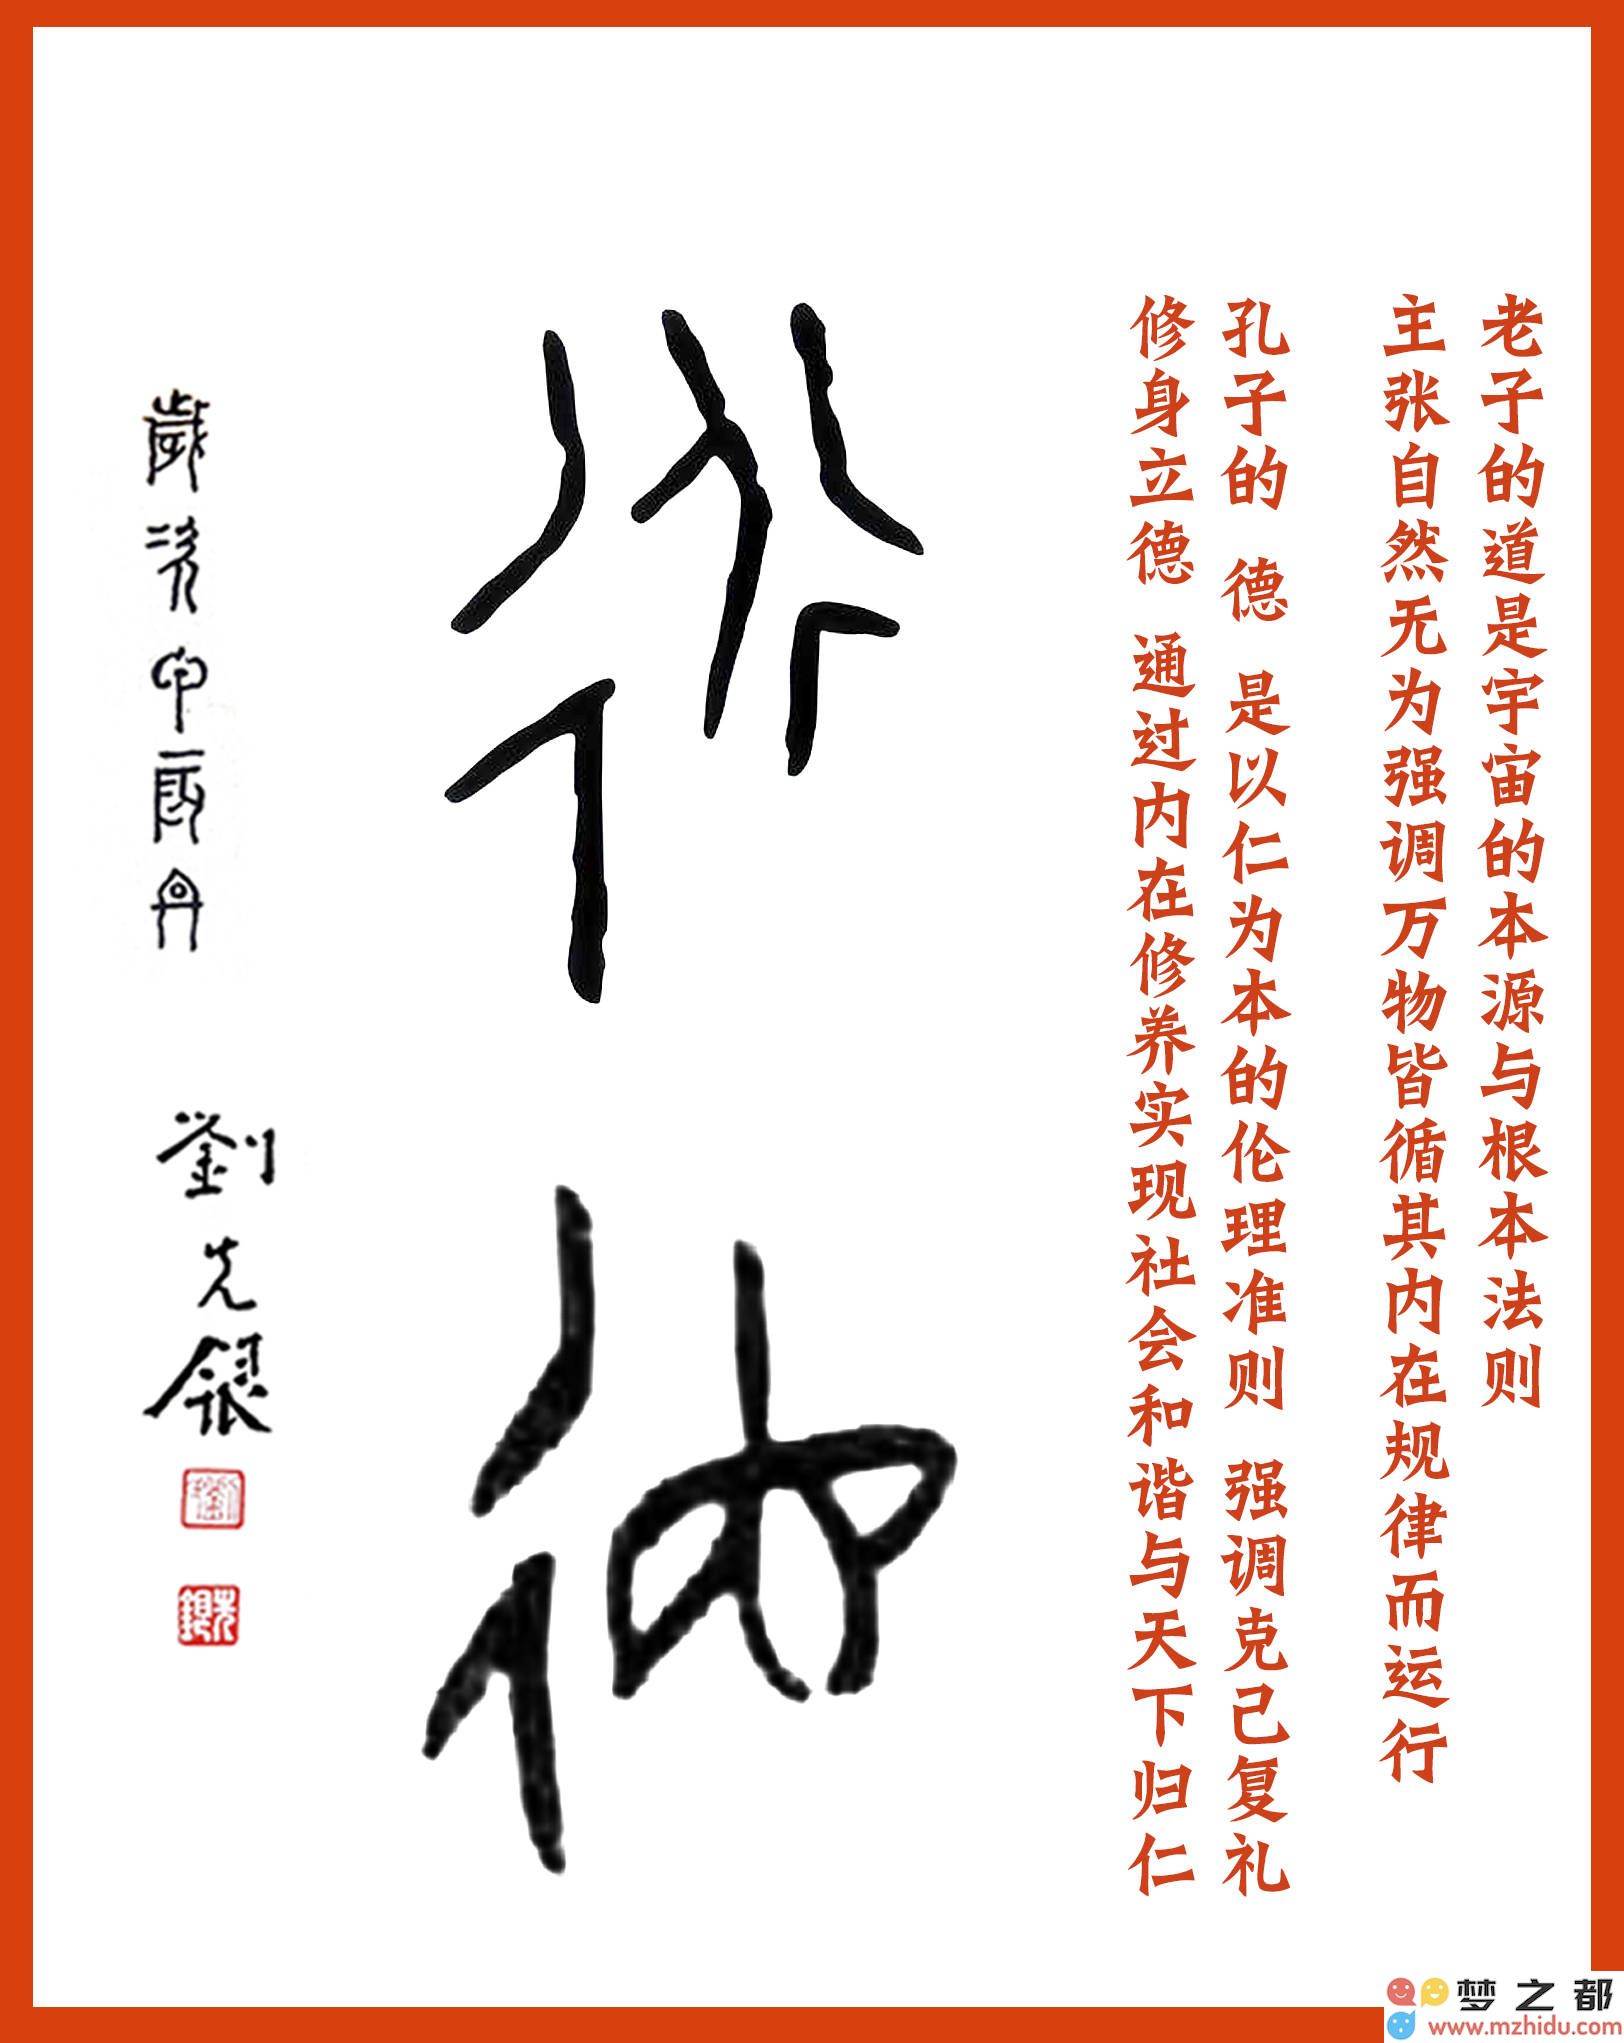 老子的道是宇宙的本源与根本法则
主张自然无为强调万物皆循其内在规律而运行
孔子的 德 是以仁为本的伦理准则 强调克己复礼
修身立德 通过内在修养实现社会和谐与天下归仁
歲次甲
劉先銀
梦之都
www.mzhidu.com